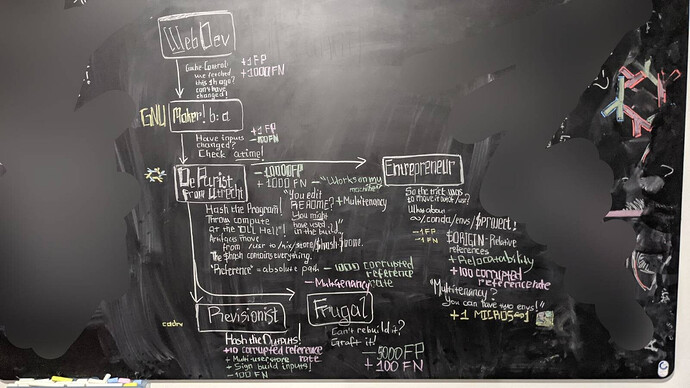 Web Dev
Cache-Control:
we fetched
this 5h ago?
can't have
changed!
+1 FP
+1000 FN
GNU Maker! b: a
Have inputs
changed?
Check atime!
+1 FP
De Purist,
from Utrecht
-10000 FP
+1000 FN
Hash the Program!
Throw compute
at the "DLL Hell"!
Artifacts move
from /usr to /nix/store/$hash-$name.
The $hash contains everything.
"Reference" = absolute path
corrupted
reference
rate
- Multitenancy
- "Works on my
machine"
+ Multitenancy
"You edit
README?
You might
have used it
in the build"
Entrepreneur
So the trick was
to move it out /usr?
What about
conda/envs/$project!
-1 FP
-1 FN
$ORIGIN-Relative
references
+ Relocatability
+100 corrupted
reference rate
"Multitenancy?
You can have two envs!"
+1
Revisionist
Hash the Outputs!
+10 corrupted reference
rate
+ Multi-user store
+ Sign build inputs!
-100 FN
Frugal
Can't rebuild it?
Graft it!
-5000 FP
+100 FN